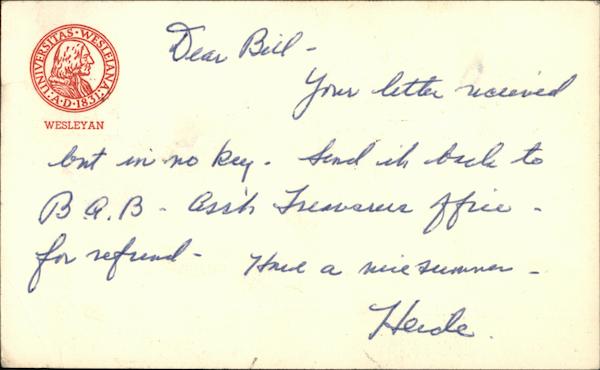 UNIVERSITAS · WESLEIANA · A·D·1831
WESLEYAN
Dear Bill -
Your letter recieved
but in no key. Send it back to
B A. B - Ass't Treasurers office -
for refund - Have a nice summer -